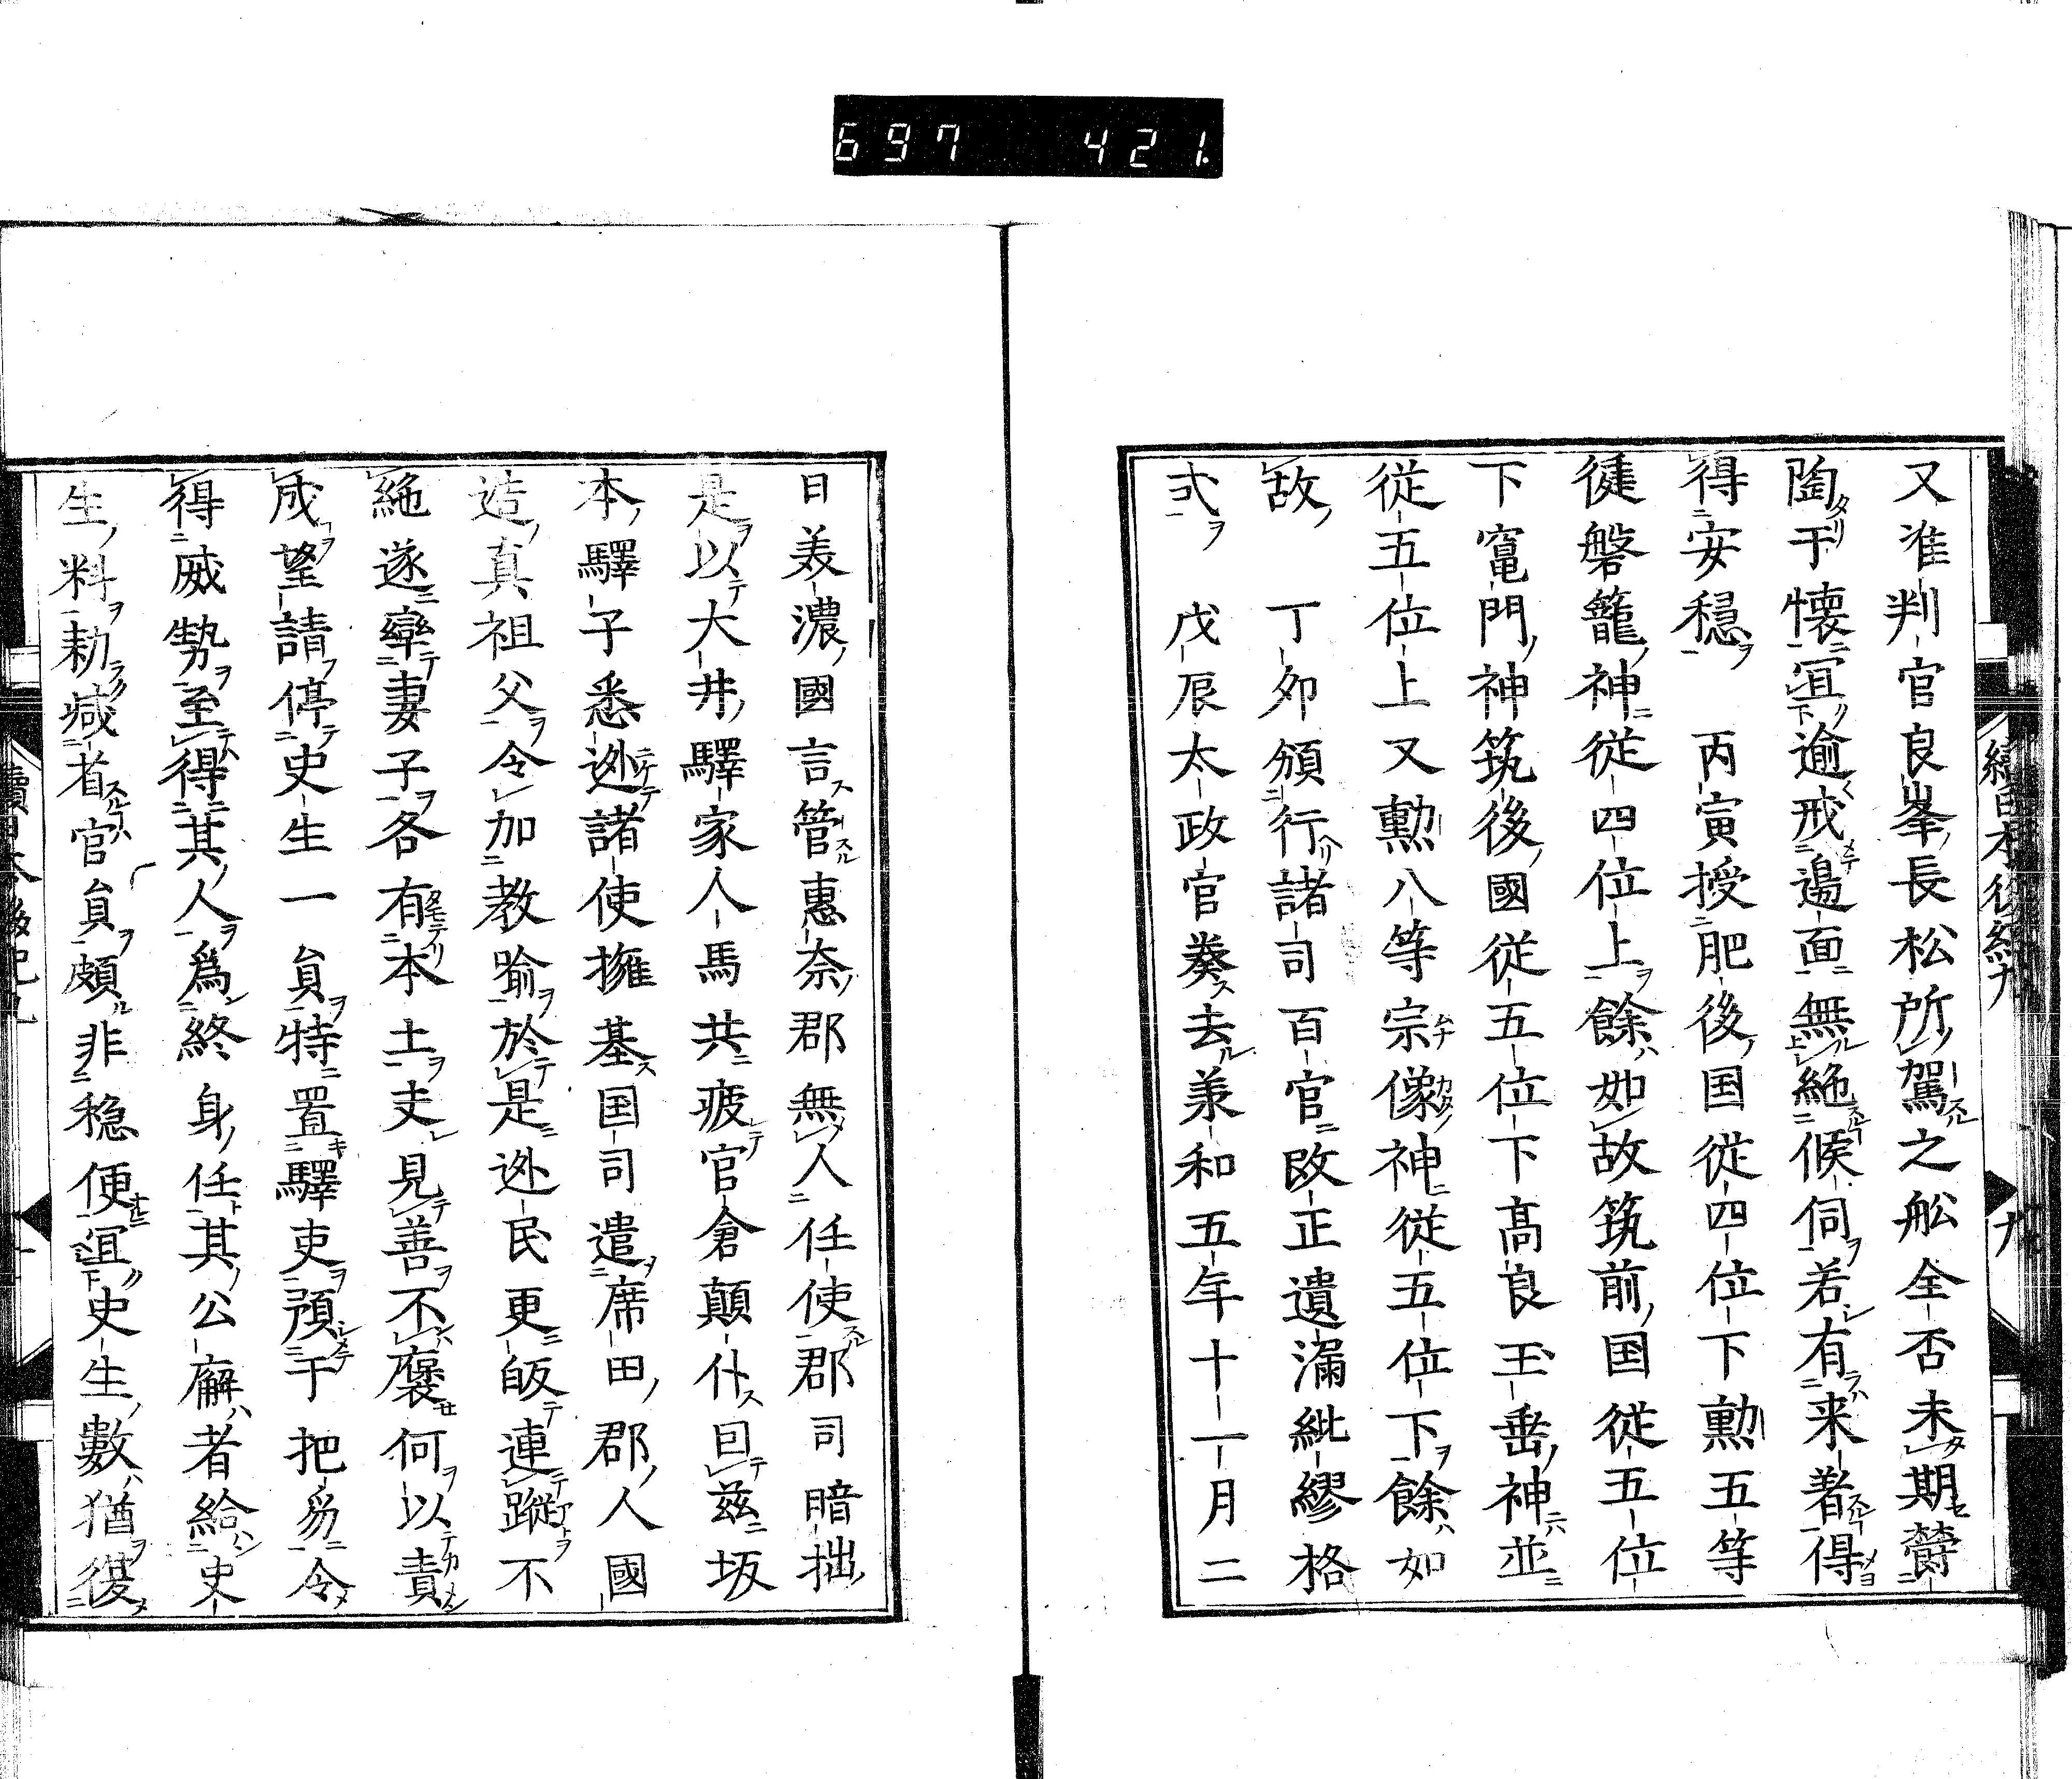 697 421.
續日本後紀九 九
又准判官良峯長松所駕之舩全否未期欝
陶于懷冝逾戒邊面無絶候伺若有来着得
得安穏 丙寅授肥後国従四位下勲五等
健磐籠神従四位上餘如故筑前国従五位
下竃門神筑後國従五位下髙良玉垂神並
従五位上又勲八等宗像神従五位下餘如
故 丁夘頒行諸司百官改正遺漏紕繆格
式 戊辰太政官奏去兼和五年十一月二
日美濃國言管惠奈郡無人任使郡司暗拙
是以大井驛家人馬共疲官倉顛仆囙茲坂
本驛子悉逃諸使擁基国司遣席田郡人國
造真祖父令加教喻於是逃民更皈連蹤不
絶遂率妻子各有本土夫見善不褒何以責
成望請停史生一貟特置驛吏預于把笏令
得威勢至得其人爲終身任其公廨者給史
生料勑减省官貟頗非穏便冝史生數猶復